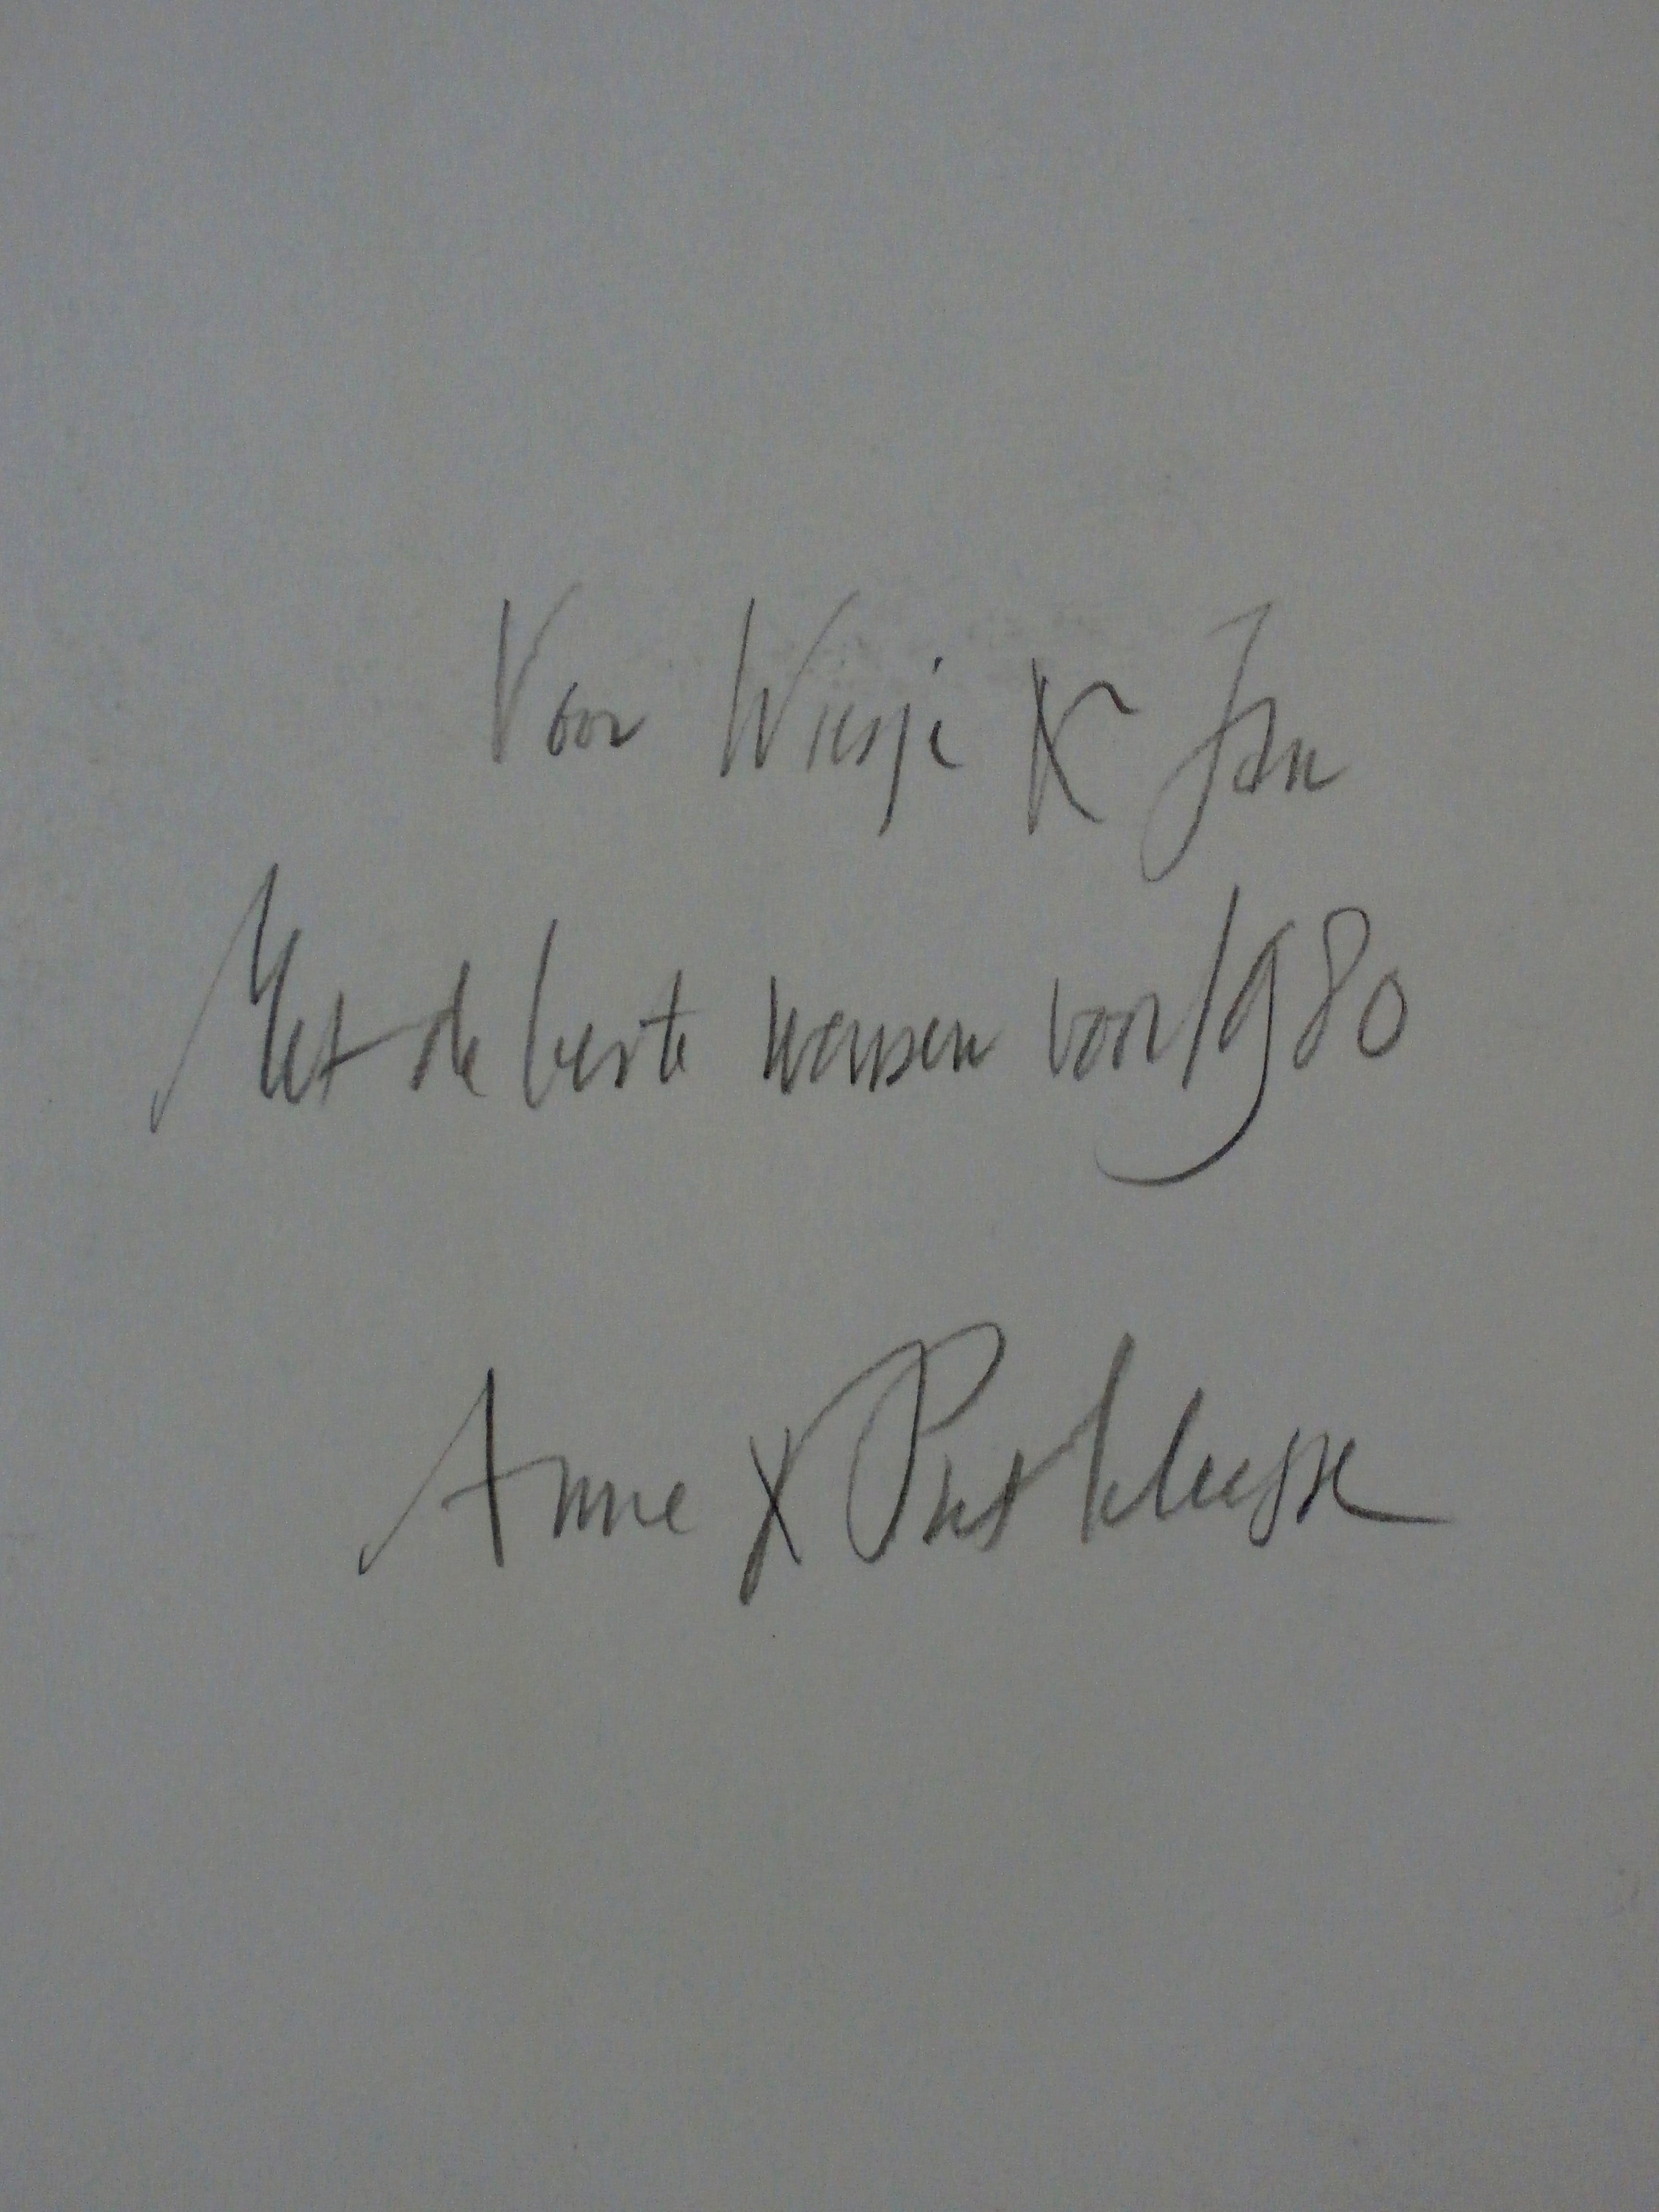 Voor Wiesje & Jan
Met de beste wensen voor 1980
Anne & Piet